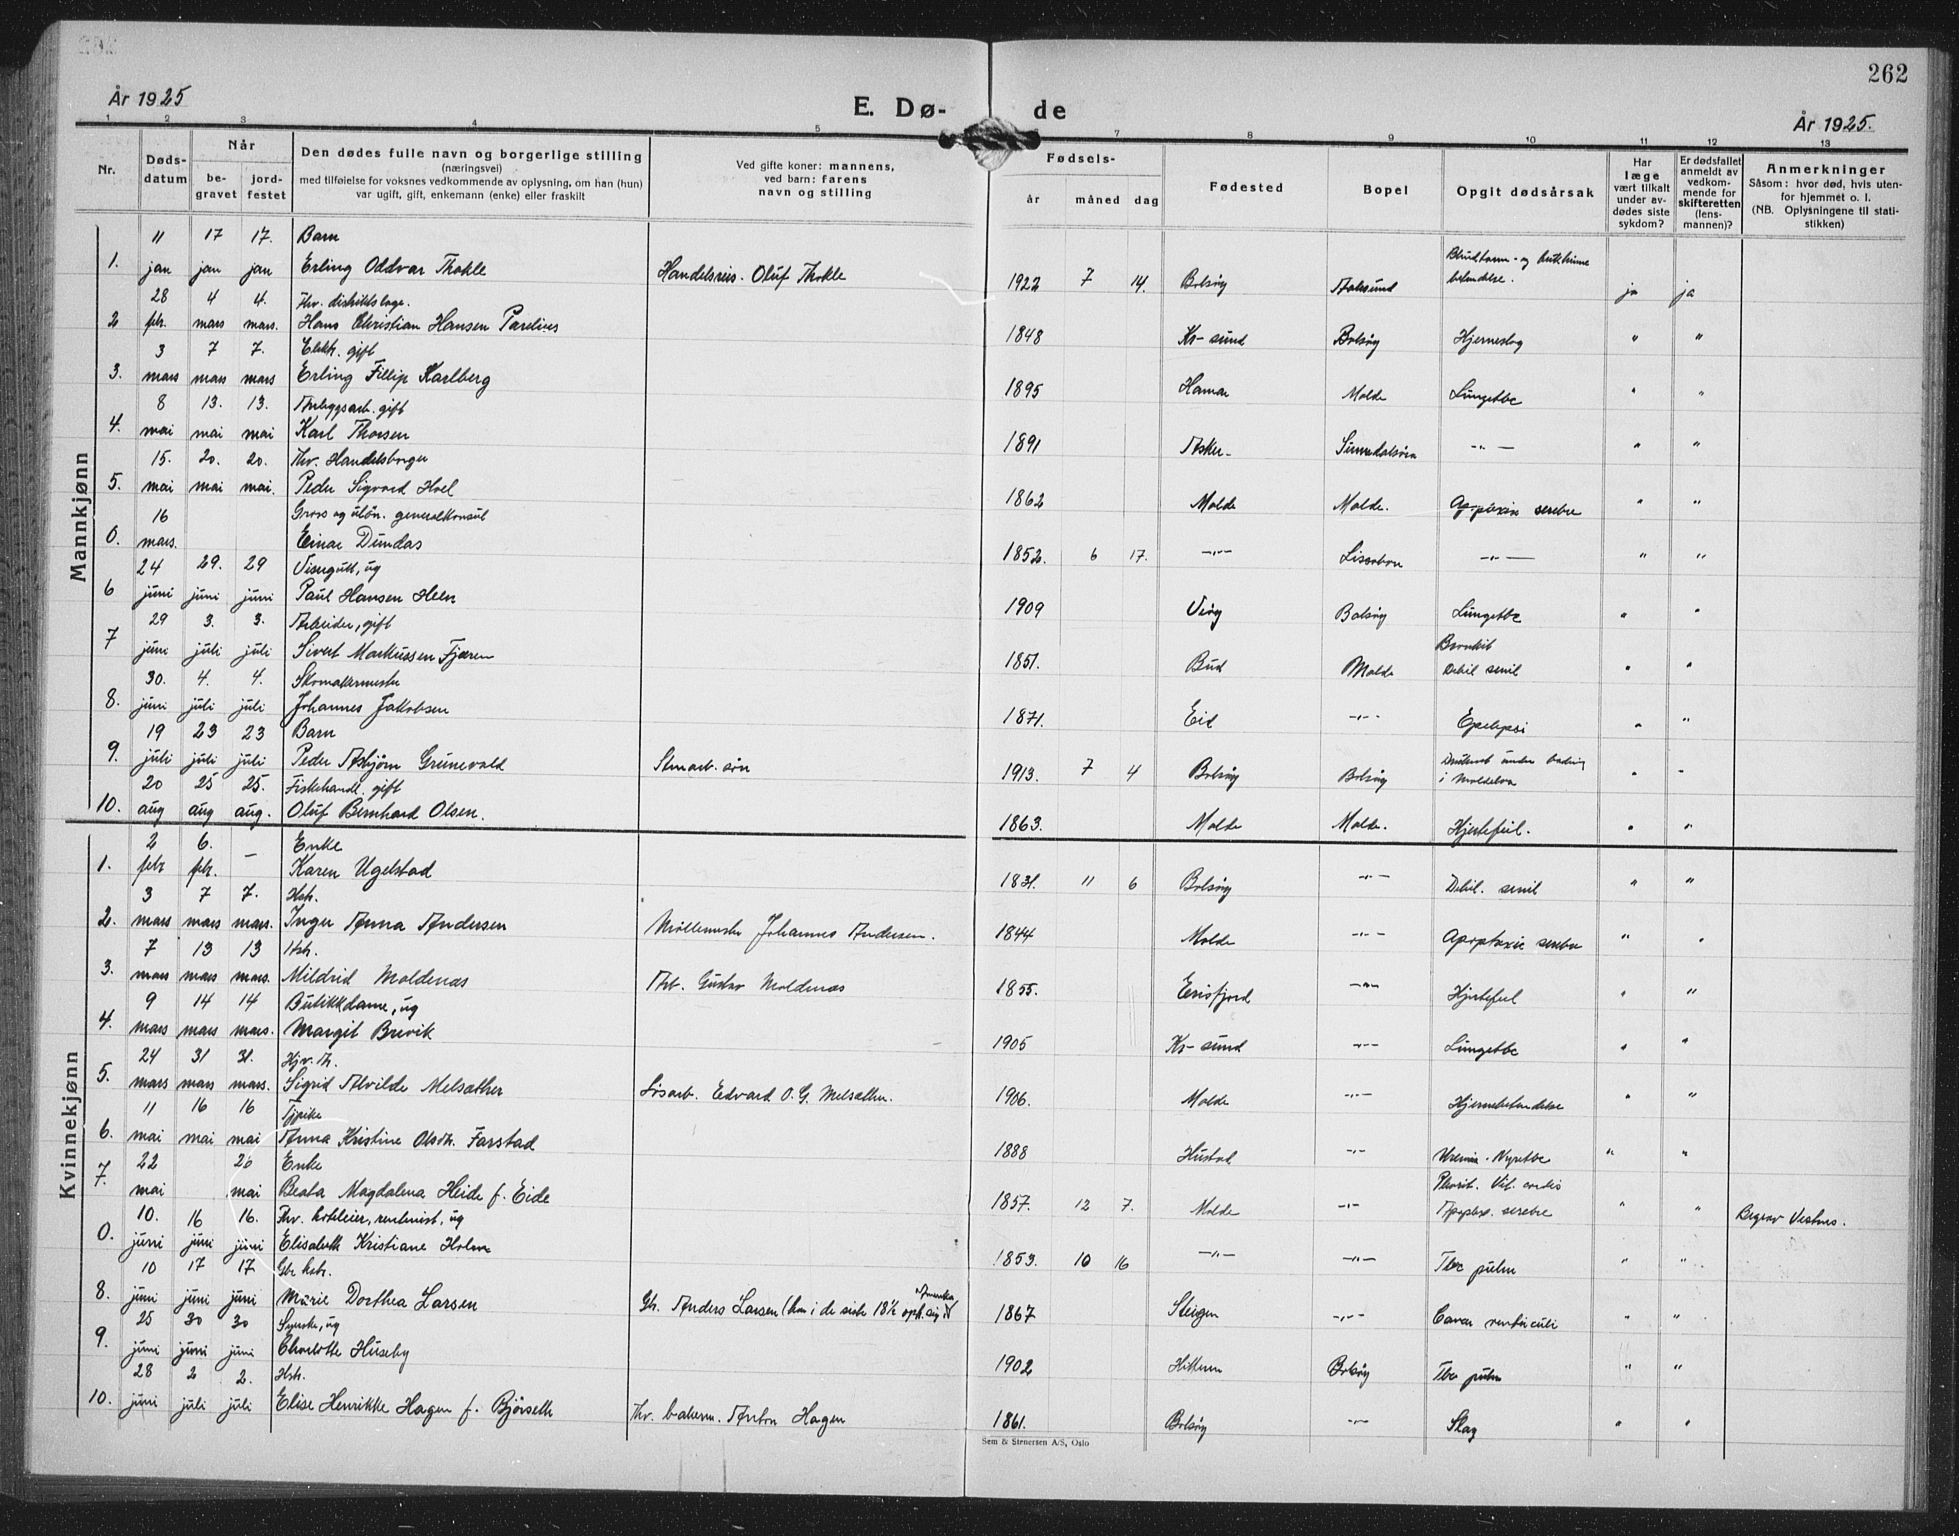 262
År 1925
E. Dø- de
År 1925.
1 2 3 4 5 6 7 8 9 10 11 12 13
Nr.
Døds-
datum
Når
be-
gravet
jord-
festet
Den dødes fulle navn og borgerlige stilling
(næringsvei)
med tilføielse for voksnes vedkommende av oplysning, om han (hun)
var ugift, gift, enkemann (enke) eller fraskilt
Ved gifte koner: mannens,
ved barn: farens
navn og stilling
Fødsels-
år måned dag
Fødested
Bopel
Opgit dødsårsak
Har
læge
vært tilkalt
under av-
dødes siste
sykdom?
Er dødsfallet
anmeldt av
vedkom-
mende for
skifteretten
(lens-
mannen)?
Anmerkninger
Såsom: hvor død, hvis uten-
for hjemmet o. l.
(NB. Oplysningene til stati-
stikken)
Mannkjønn
11 17 17. Barn
1. jan jan jan Erling Oddvar Thokle Handelsreis. Oluf Thokle 1922 7 14. Bolsøy Aalesund ja ja
28 4 4. Fhv. distriktslæge.
2 febr. mars mars. Hans Christian Hansen Parelius 1848 Kr-sund Bolsøy Hjerneslag " "
3 7 7. Elektr. gift
3. mars mars mars Erling Fillip Karlberg 1895 Hamar Molde Lungetbc " "
8 13. 13. Anleggsarb. gift
4. mai mai mai Karl Thorsen 1891 Asker - Sunndalsøra -"- " "
15. 20. 20. Fhv. Handelsborger
5. mai mai mai. Peder Sigvard Hoel 1862 Molde Molde. Apoplexia serebre " "
16 Gross og uløn. generalkonsul
0. mars. Einar Dundas 1852. 6 17. -"- Lissabon -"- " "
24 29. 29 Visergutt, ug
6 juni juni juni Paul Hansen Heen 1909 Veøy Bolsøy Lungetbc " "
29 3. 3. Arbeider, gift
7 juni juli juli Sivert Markussen Fjæren 1851. Bud Molde Bronkit
Debil senil " "
30. 4. 4. Skomakermester
8. juni juli juli Johannes Jakobsen 1871. Eid -"- Epelepsi " "
19 23 23 Barn
9. juli juli juli Peder Asbjørn Grunevald Stenarb. søn 1913. 7 4 Bolsøy Bolsøy Druknet under bading
i Moldeelva " "
20 25 25. Fiskehandl. gift
10. aug aug aug. Oluf Bernhard Olsen. 1863. Molde Molde. Hjertefeil. " "
Kvinnekjønn
2 6. - Enke
1. febr febr. Karen Ugelstad 1831. 11 6 Bolsøy -"- Debil. senil " "
3 7 7. Hstr.
2. mars mars mars. Inger Anna Andersen Møllemester Johannes Andersen. 1844 Molde -"- Apoplexie serebre " "
7 13 13 Hstr.
3. mars mars mars. Mildrid Moldenæs Arb. Gustav Moldenæs 1855. Eresfjord -"- Hjertefeil " "
9 14 14 Butikkdame, ug
4. mars mars mars. Margit Brevik 1905 Kr-sund -"- Lungetbc " "
24 31 31. Hjv. th.
5. mars mars mars. Sigrid Alvilde Melsæther Løsarb. Edvard O. G. Melsæther. 1906. Molde -"- Hjernebetendelse " "
11 16 16 Tjpike
6. mai mai mai Anna Kristine Olsdtr. Farstad 1888 Hustad -"- Uremia - Nyretbc " "
22 26 Enke
7. mai mai Beata Magdalena Heide f. Eide 1857. 12 7. Molde -"- Vit. cordis
Apoplex. serebre " " Begrav Vestnes.
10. 16 16. Fhv. hoteleier, rentenist, ug
0. juni juni juni Elisabeth Kristiane Holm 1853. 10 16 -"- -"- Tbc pulm " "
10 17 17 Gbr hstr.
8. juni juni juni Marie Dorthea Larsen Gb. Anders Larsen (han i de siste 18½ oph. sig i Amerika) 1867 Steigen -"- Cancer ventriculi " "
25 30 30 Syerske, ug
9. juni juni juni Charlotte Huseby 1902 Hitteren Bolsøy Tbc pulm " "
28 2 2. Hstr.
10. juni juli juli Elise Henrikke Hagen f. Bjørseth Fhv. bakerm. Anton Hagen 1861. Bolsøy -"- Slag " "
Sem & Stenersen A/S, Oslo